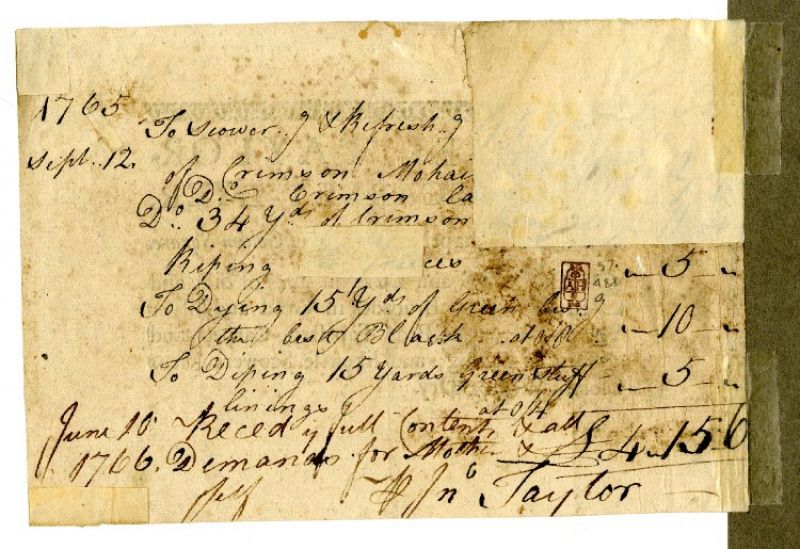 1765
Sept. 12.
To Scower.g & Refresh.g
of Crimson Mohai
of Do Crimson La
Do 34 Yds of Crimson
Riping ces
„ 5 „
To Dying 15 Yds of Green
the best Black at
„ 10 „
To Diping 15 Yards Green Stuff
„ 5 „
linings at 0/4
June 16 Reced ye full Contents & all
1766. Demands for Mother & £ 4 „ 15 6
self
Jno Taylor